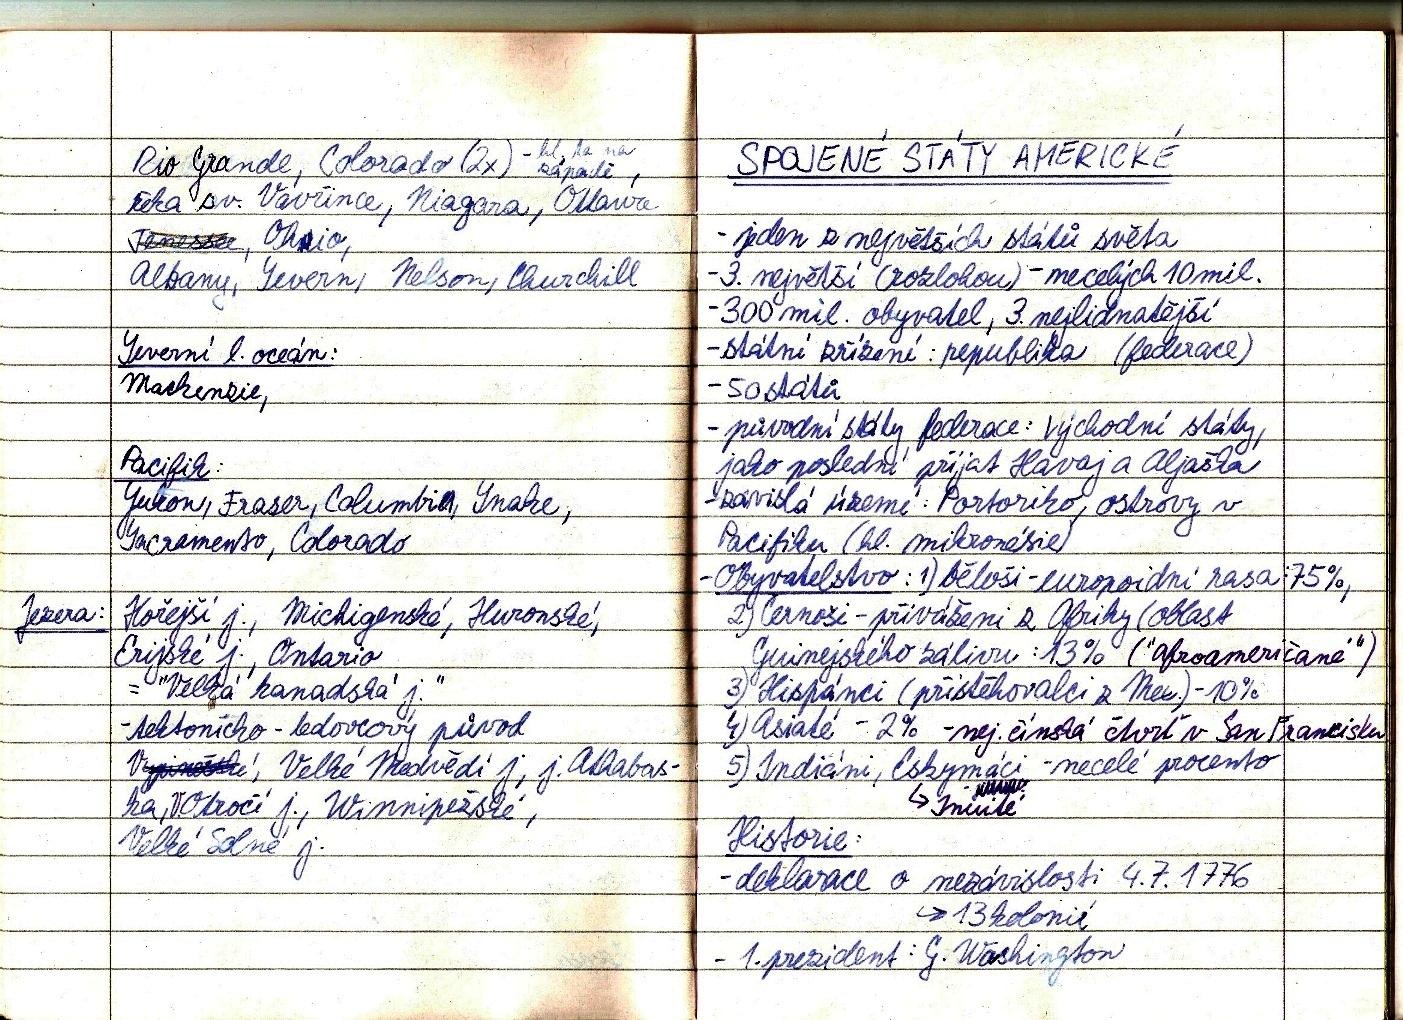 Rio Grande, Colorado (2x) - hl. ta na západě,
řeka sv. Vavřince, Niagara, Ottawa
Ohio,
Albany, Severn, Nelson, Churchill
Severní l. oceán:
Mackenzie,
Pacifik:
Yukon, Fraser, Columbia, Snake,
Sacramento, Colorado
Jezera: Hořejší j., Michigenské, Huronské,
Erijské j., Ontario
= "Velká kanadská j."
- tektonicko - ledovcový původ
Velké Medvědí j., j. Athabas-
ka, Otročí j., Winnipežské,
Velké Solné j.
SPOJENÉ STÁTY AMERICKÉ
- jeden z největších států světa
- 3. největší (rozlohou) - necelých 10 mil.
- 300 mil. obyvatel, 3. nejlidnatější
- státní zřízení: republika (federace)
- 50 států
- původní státy federace: východní státy,
jako poslední přijat Havaj a Aljaška
- závislá území: Portoriko, ostrovy v
Pacifiku (hl. mikronésie)
- Obyvatelstvo: 1) běloši - europoidní rasa: 75%,
2) Černoši - přivážení z Afriky (oblast
Guinejského zálivu: 13% ("afroameričané")
3) Hispánci (přistěhovalci z Mex.) - 10%
4) Asiaté - 2% - nej. čínská čtvrť v San Francisku
5) Indiáni, Eskymáci - necelé procento
↳ Inuité
Historie:
- deklarace o nezávislosti 4.7.1776
↳ 13 kolonií
- 1. prezident: G. Washington